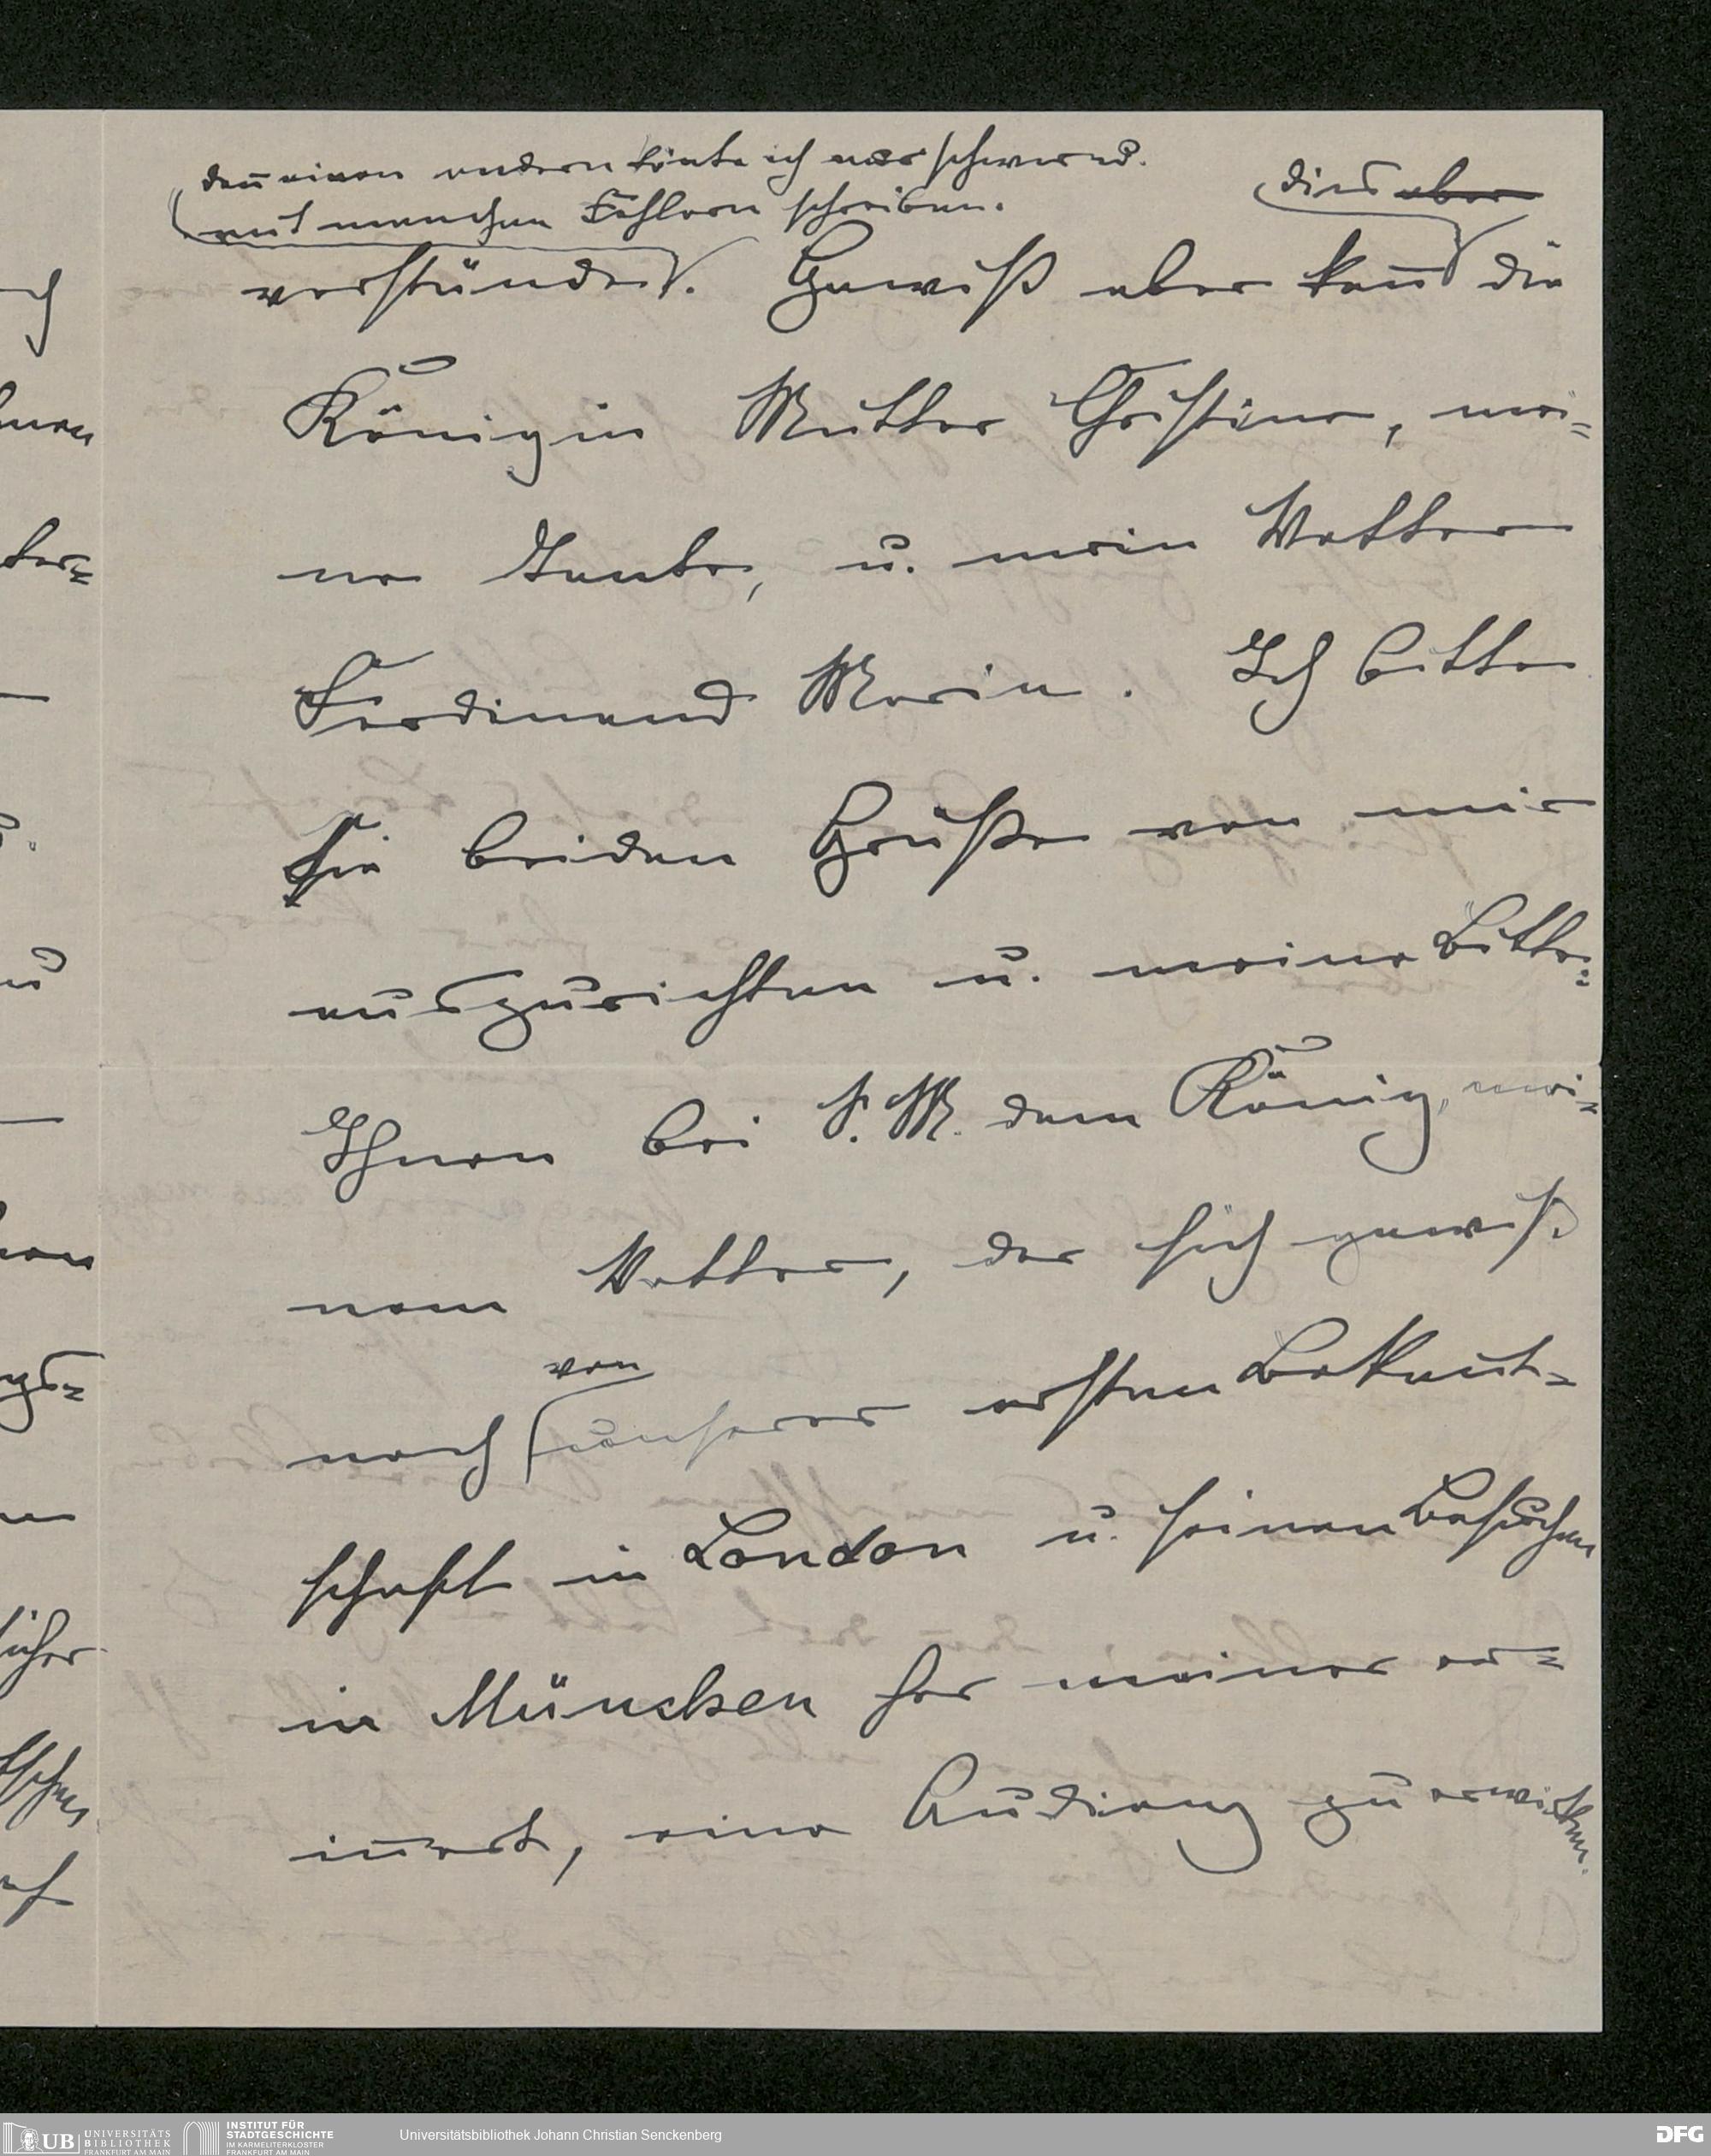 den̄ einen andern kön̄te ich nur schwer u.
mit manchen Fehlern schreiben.
dies aber
verstünde. Gewiß aber kan̄ die
Königin Mutter Christine, mei-
ne Tante, u. mein Vetter
Ferdinand Maria. Ich bitte
Sie beiden Grüße von mir
auszurichten u. meine Bitte:
Ihnen bei S. M. dem König, mei-
nem Vetter, der sich gewiß
von
noch unserer ersten Bekan̄t-
schaft in London u. seinen Besuchen
in München her meiner er-
in̄ert, eine Audienz zu erwirken.
ch
ter-
gs-
UB UNIVERSITÄTS
BIBLIOTHEK
FRANKFURT AM MAIN
INSTITUT FÜR
STADTGESCHICHTE
IM KARMELITERKLOSTER
FRANKFURT AM MAIN
Universitätsbibliothek Johann Christian Senckenberg
DFG